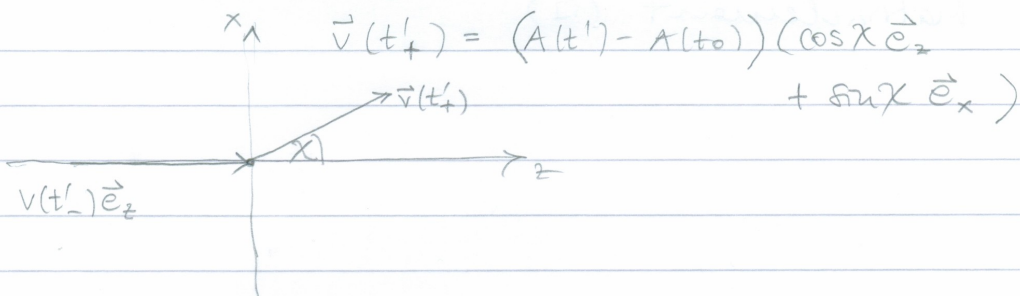 x
v⃗(t'₊) = (A(t') - A(t₀))(cosχ e⃗_z
+ sinχ e⃗_x)
v⃗(t'₊)
χ
z
v(t'₋)e⃗_z